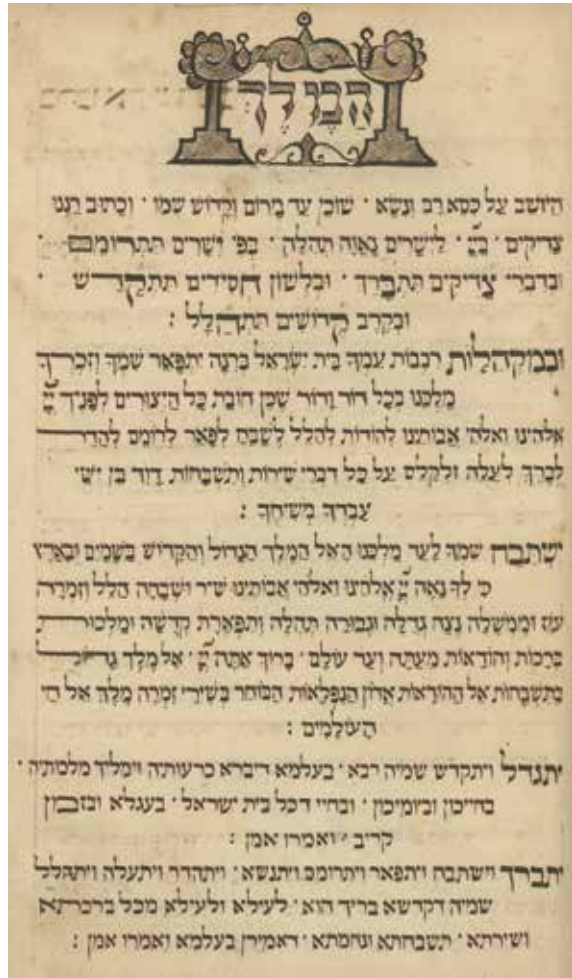 הַמֶּלֶךְ
היושב על כסא רם ונשא · שוכן עד מרום וקדוש שמו · וכתוב רננו
צדיקים · ביי׳ · לישרים נאוה תהלה · בפי ישרים תתרומם ·
ובדברי צדיקים תתברך · ובלשון חסידים תתקדש ·
ובקרב קדושים תתהלל :
ובמקהלות רבבות עמך בית ישראל ברנה יתפאר שמך וזכרך
מלכנו בכל דור ודור שכן חובת כל היצורים לפניך יי׳
אלהינו ואלהי אבותינו להודות להלל לשבח לפאר לרומם להדר
לברך לעלה ולקלס על כל דברי שירות ותשבחות דוד בן ישי
עבדך משיחך :
ישתבח שמך לעד מלכנו האל המלך הגדול והקדוש בשמים ובארץ
כי לך נאה יי׳ אלהינו ואלהי אבותינו שיר ושבחה הלל וזמרה
עוז וממשלה נצח גדלה וגבורה תהלה ותפארת קדשה ומלכות
ברכות והודאות מעתה ועד עולם · ברוך אתה יי׳ · אל מלך גדול
בתשבחות אל ההודאות אדון הנפלאות הבוחר בשירי זמרה מלך אל חי
העולמים :
יתגדל ויתקדש שמיה רבא · בעלמא דיברא כרעותיה וימליך מלכותיה ·
בחייכון וביומיכון · ובחיי דכל בית ישראל · בעגלא ובזמן
קריב · ואמרו אמן :
יתברך וישתבח ויתפאר ויתרומם ויתנשא · ויתהדר ויתעלה ויתהלל
שמיה דקדשא בריך הוא · לעילא ולעילא מכל ברכתא
ושירתא · תשבחתא ונחמתא · דאמירן בעלמא ואמרו אמן :